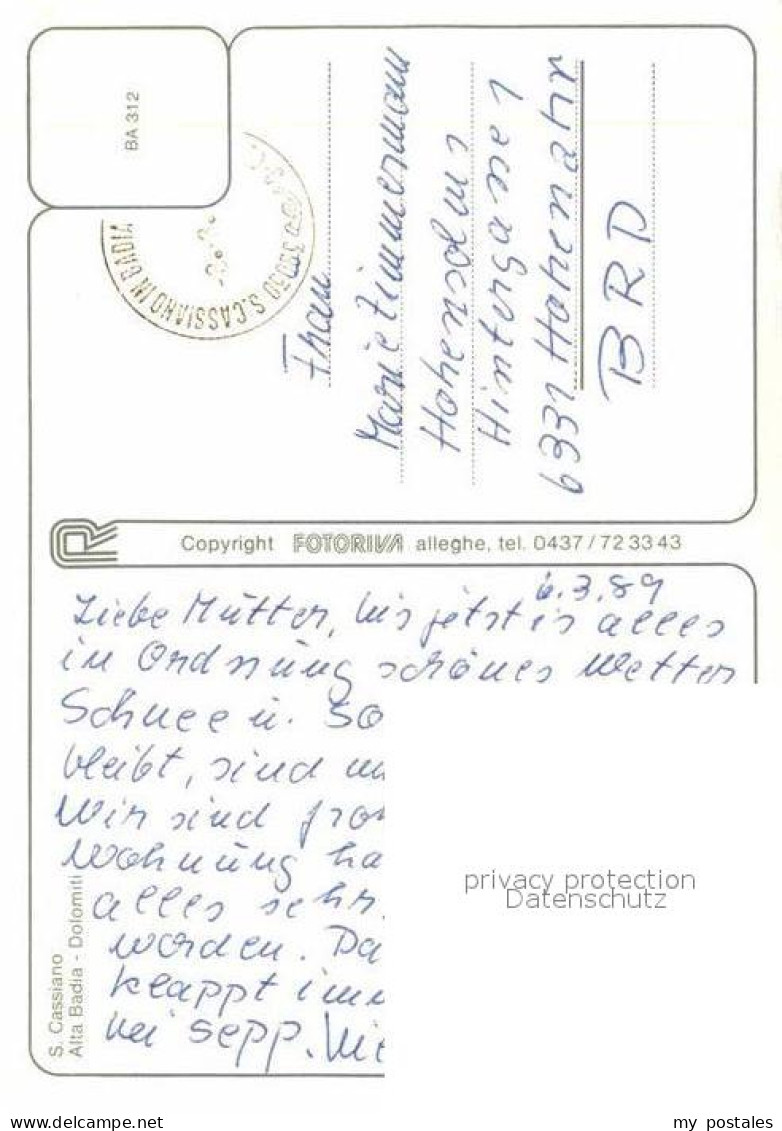 BA 312
39030 S. CASSIANO IN BADIA
Frau
Marie Zimmermann
Hohensolms
Hintergasse 1
6331 Hohenahr
BRD
Copyright FOTORIVA alleghe, tel. 0437/72 33 43
6.3.89
Liebe Mutter, bis jetzt is alles
in Ordnung schönes Wetter
Schnee u. So
bleibt, sind
Wir sind fro
Wohnung ha
alles sehr
worden. Da
klappt imm
bei Sepp. Vie
S. Cassiano
Alta Badia - Dolomiti
privacy protection
Datenschutz
my postales